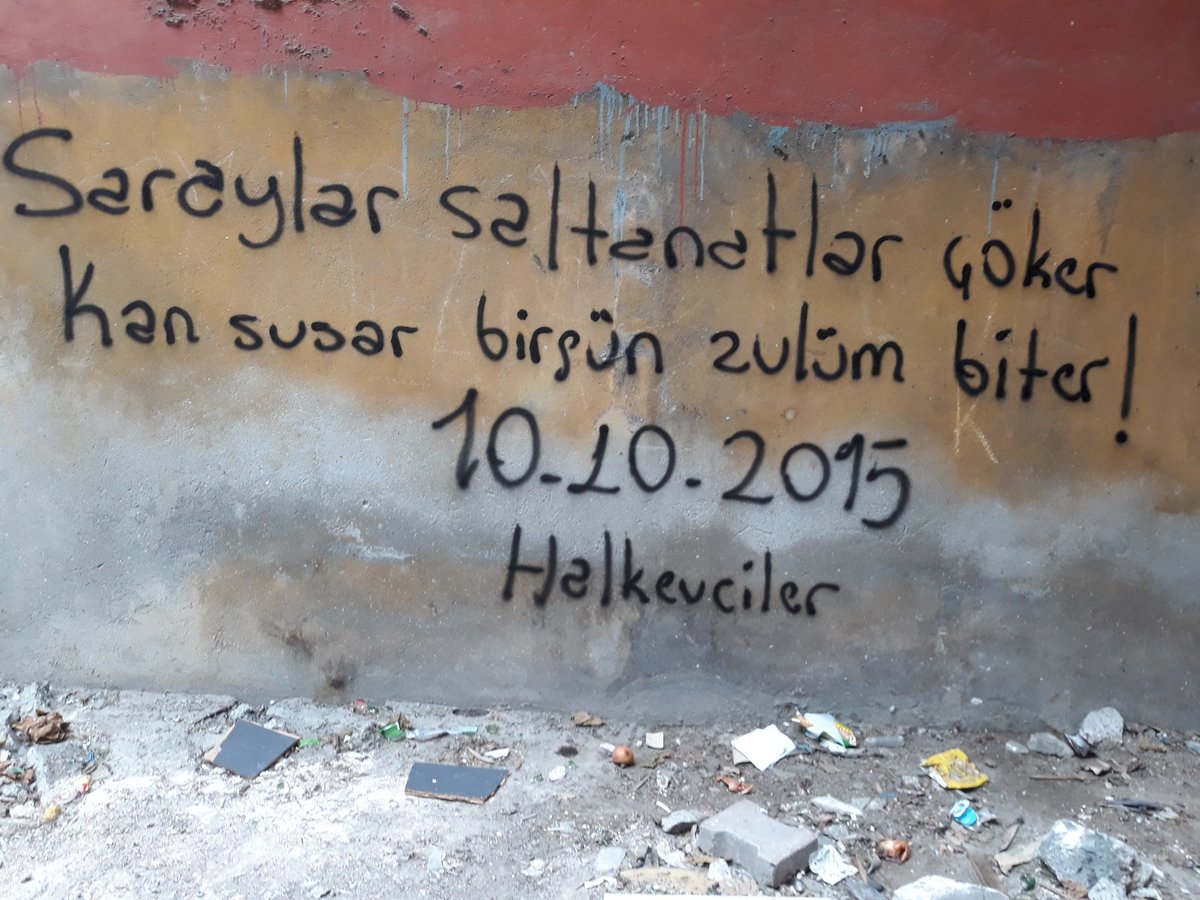 Saraylar saltanatlar çöker
Kan susar birgün zulüm biter!
10.10.2015
Halkevciler